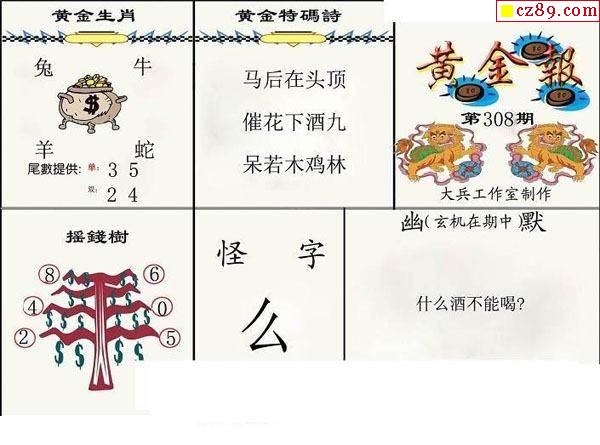 cz89.com
黄金生肖
兔 牛
$
羊 蛇
尾數提供: 单: 3 5
双: 2 4
黄金特碼詩
马后在头顶
催花下酒九
呆若木鸡林
黄金報
第308期
大兵工作室制作
摇錢樹
8 6
4 0
2 5
$ $ $ $ $ $ $ $
怪 字
么
幽(玄机在期中)默
什么酒不能喝?